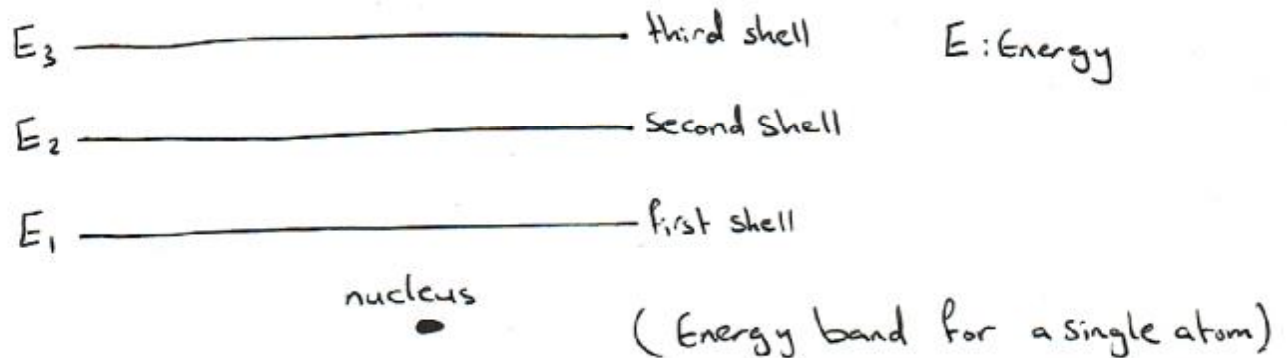 E₃ third shell E : Energy
E₂ second shell
E₁ first shell
nucleus
(Energy band for a single atom)